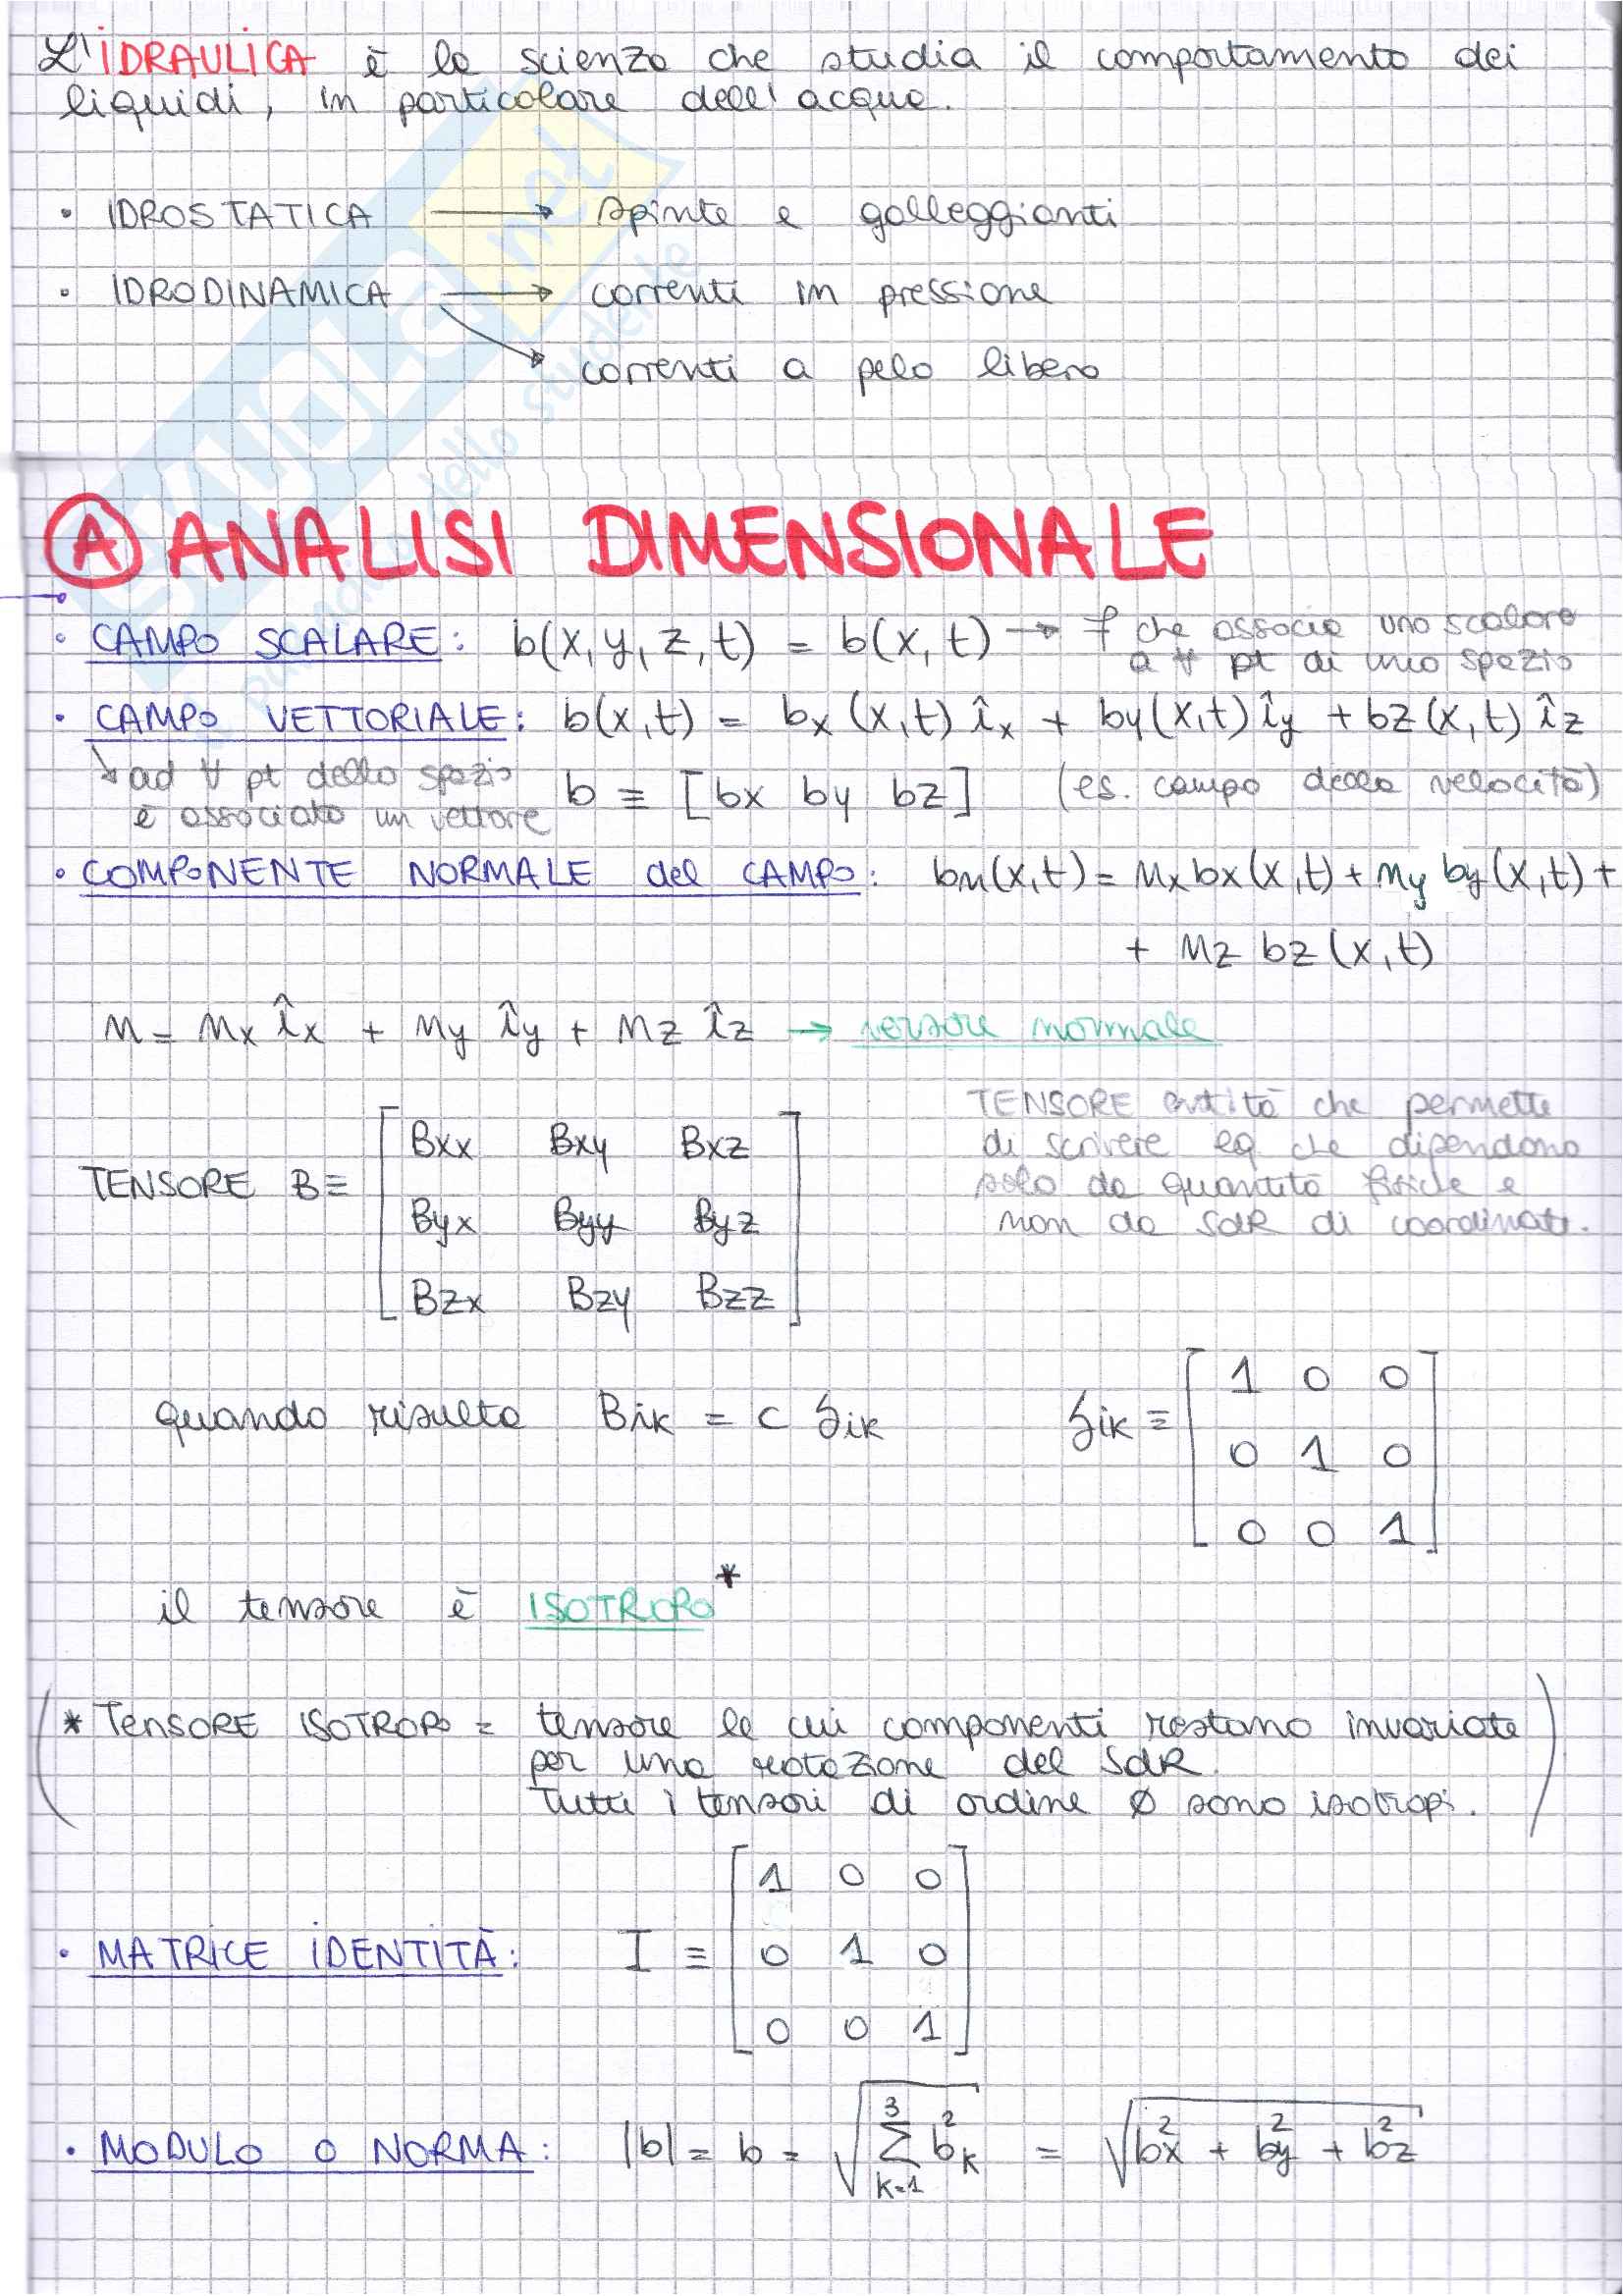 L'IDRAULICA è la scienza che studia il comportamento dei
liquidi, in particolare dell'acqua.
• IDROSTATICA → spinte e galleggianti
• IDRODINAMICA → correnti in pressione
correnti a pelo libero
A ANALISI DIMENSIONALE
• CAMPO SCALARE: b(x,y,z,t) = b(x,t) → f che associa uno scalare
a ∀ pt di uno spazio
• CAMPO VETTORIALE: b(x,t) = bx(x,t) îx + by(x,t) îy + bz(x,t) îz
↳ ad ∀ pt dello spazio
è associato un vettore
b ≡ [bx by bz] (es. campo della velocità)
• COMPONENTE NORMALE del CAMPO: bn(x,t) = nx bx(x,t) + ny by(x,t) +
+ nz bz(x,t)
n = nx îx + ny îy + nz îz → versore normale
TENSORE B ≡
Bxx Bxy Bxz
Byx Byy Byz
Bzx Bzy Bzz
TENSORE entità che permette
di scrivere eq che dipendono
solo da quantità fisiche e
non da SdR di coordinate.
quando risulta Bik = c δik
δik ≡
1 0 0
0 1 0
0 0 1
il tensore è ISOTROPO*
(* TENSORE ISOTROPO = tensore le cui componenti restano invariate
per una rotazione del SdR.
Tutti i tensori di ordine ∅ sono isotropi.)
• MATRICE IDENTITÀ: I ≡
1 0 0
0 1 0
0 0 1
• MODULO O NORMA: |b| = b = √(∑_{k=1}^{3} b²k) = √(b²x + b²y + b²z)
SKUOLA.net
dello studente